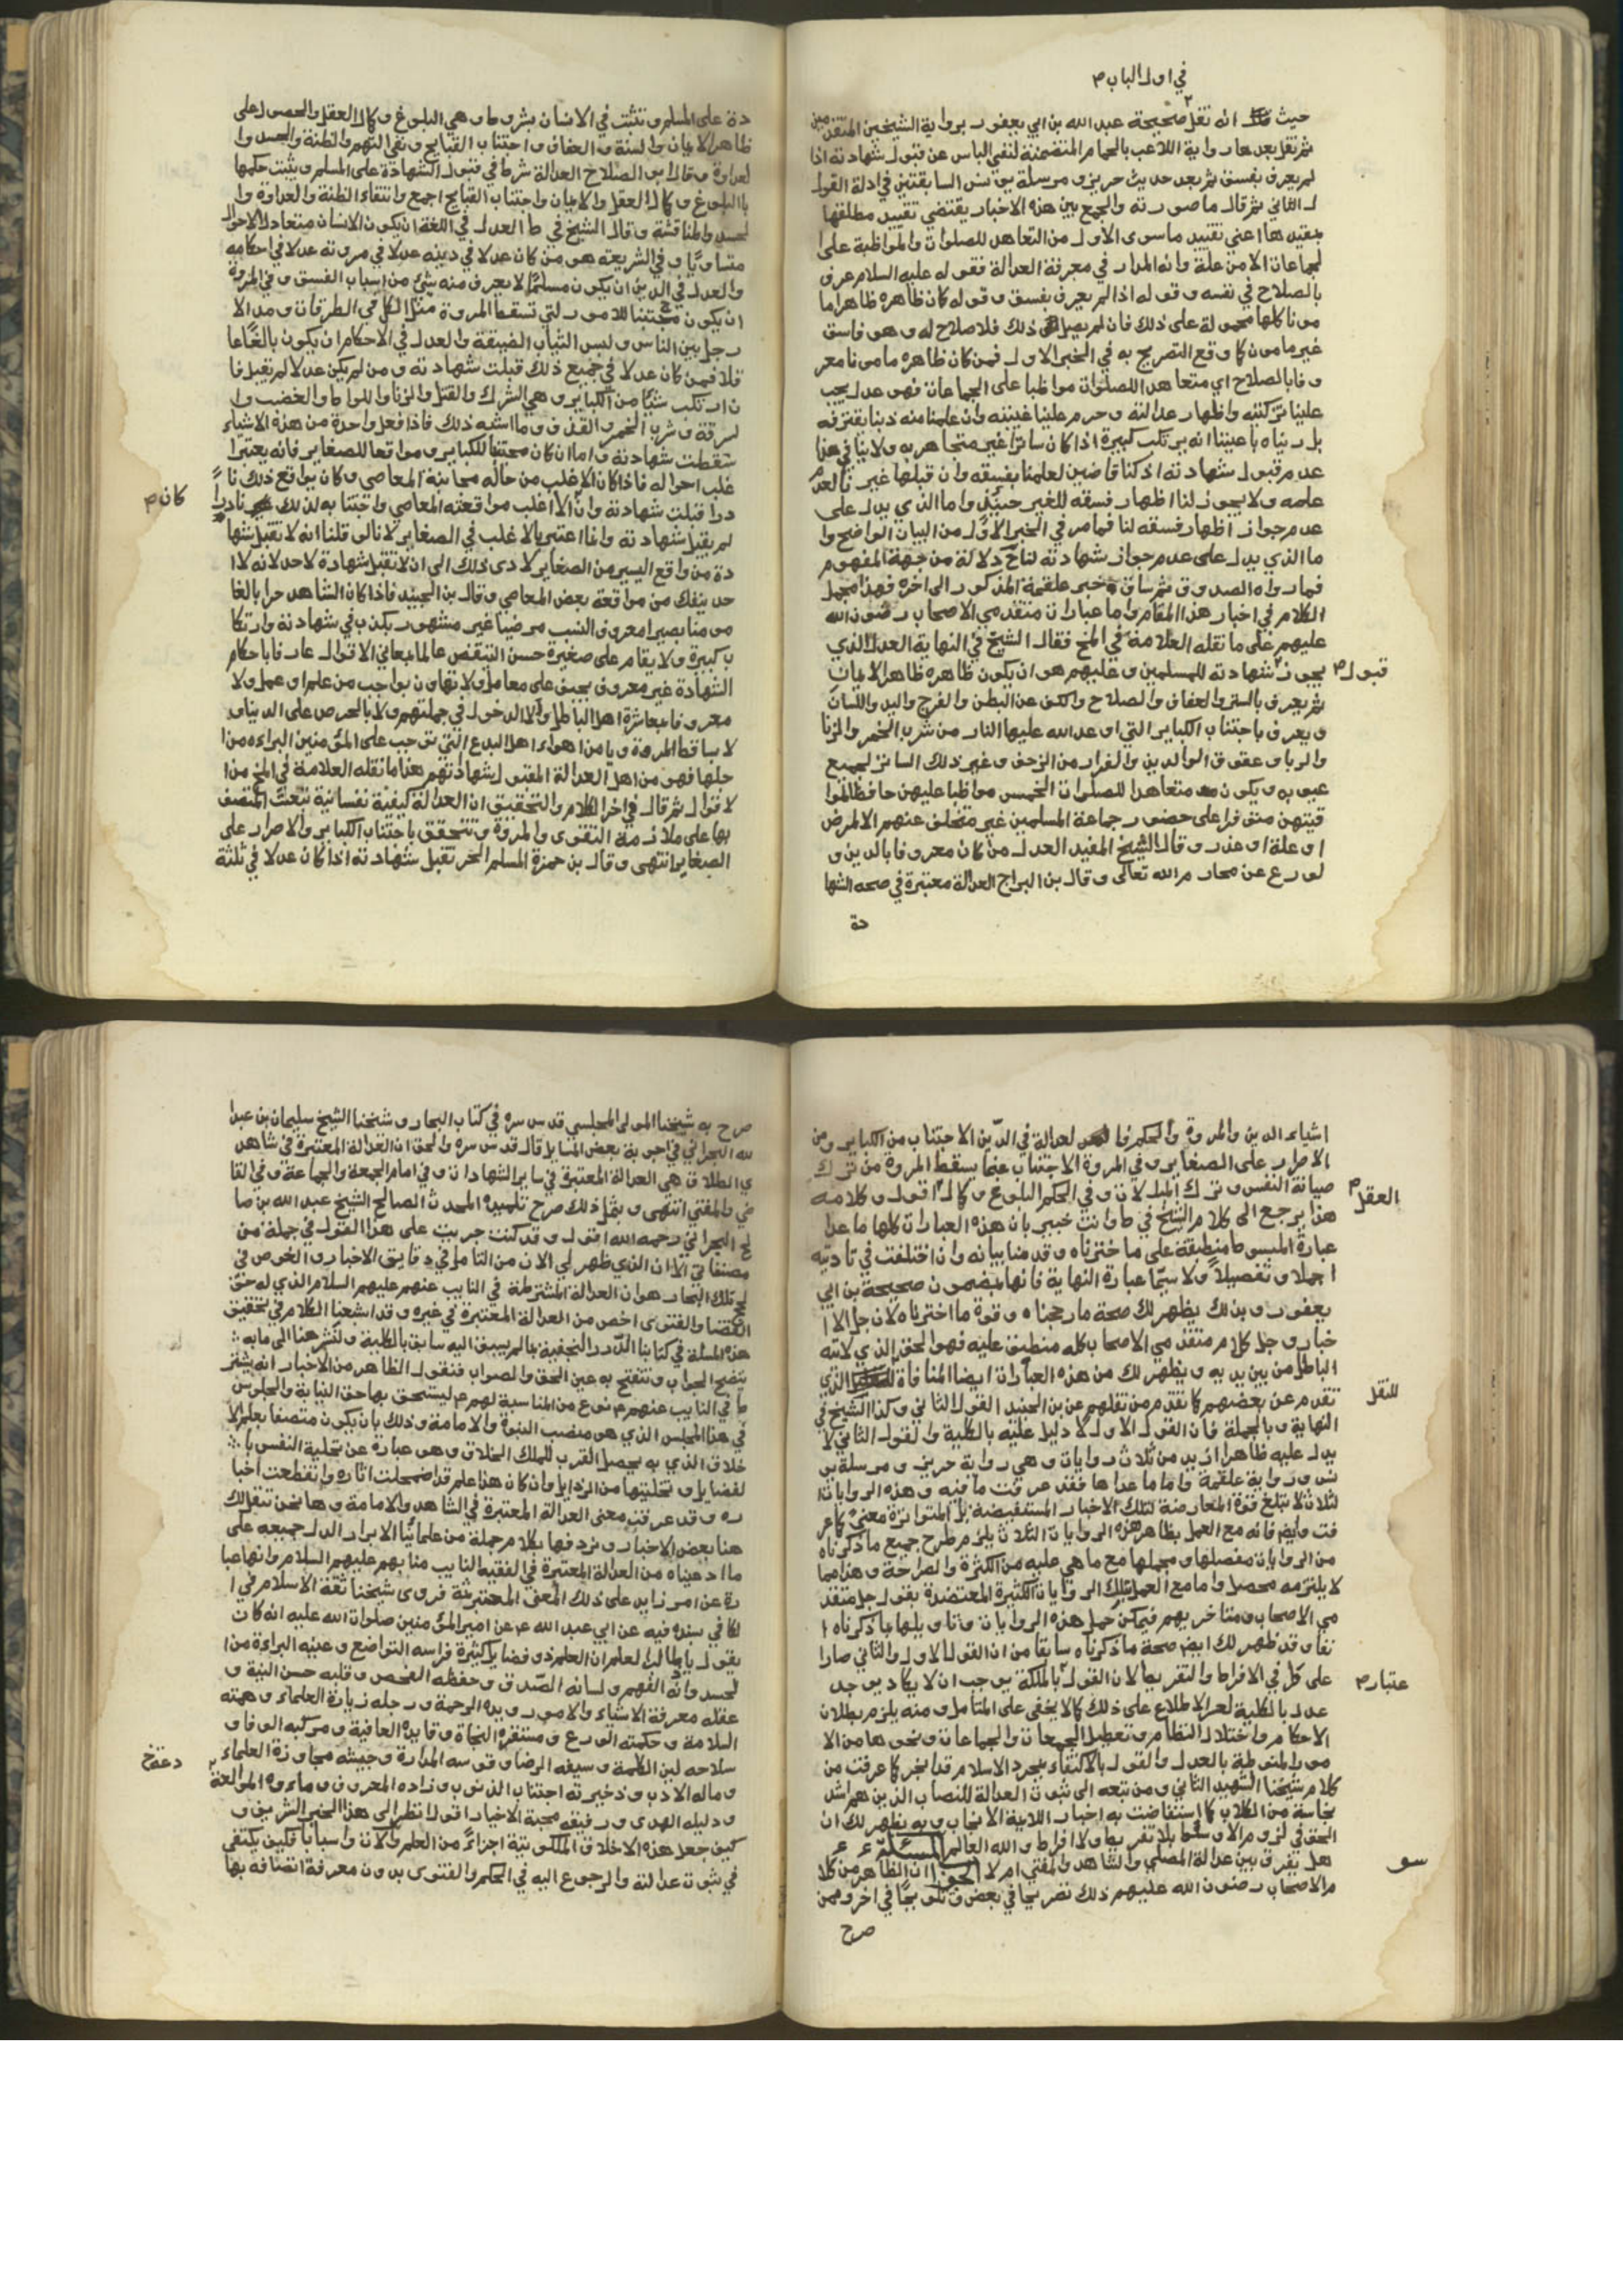 في اول الباب م
حيث انه نقل صحيحة عبد الله بن ابي يعفور برواية الشيخين المتقدمين
ثم نقل بعدها رواية اللاعب بالحمام المتضمنة لنفي الباس عن قبول شهادته اذا
لم يعرف بفسق ثم بعد حديث حريز و مرسلة يونس السابقتين في ادلة القو
ل الثاني ثم قال ما صورته والجمع بين هذه الاخبار يقتضي تقييد مطلقها
بمقيدها اعني تقييد ما سوى الاول من التعاهد للصلوات والمواظبة على ا
لجماعات الا من علة وانه المدار في معرفة العدالة فقوله عليه السلام عرف
بالصلاح في نفسه وقوله اذا لم يعرف بفسق وقوله كان ظاهره ظاهرا ما
مونا كلها محمولة على ذلك فان لم يصل الى ذلك فلا صلاح له وهو فاسق
غير مامون كما وقع التصريح به في الخبر الاول فمن كان ظاهره مامونا معر
وفا بالصلاح اي متعاهدا للصلوات مواظبا على الجماعات فهو عدل يجب
علينا تزكيته واظهار عدالته وحرم علينا غيبته وان علمنا منه ذنبا يقترفه
بل رءيناه باعيننا انه يرتكب كبيرة اذا كان ساترا غير متجاهر به ولا ينافي هذا
عدم قبول شهادته اذ كنا قاضين لعلمنا بفسقه وان قبلها غيرنا لعدم
علمه ولا يجوز لنا اظهار فسقه للغير حينئذ واما الذي يدل على
عدم جواز اظهار فسقه لنا فما مر في الخبر الاول من البيان الواضح وا
ما الذي يدل على عدم جواز شهادته لنا دلالة من جهة المفهوم
فما رواه الصدوق ثم ساق خبر علقمة المذكور الى اخره فهذا مجمل
الكلام في اخبار هذا المقام واما عبارات متقدمي الاصحاب رضوان الله
عليهم على ما نقله العلامة في المخ فقال الشيخ في النهاية العدل الذي
قبول م
يجوز شهادته للمسلمين وعليهم هو ان يكون ظاهره ظاهر الايمان
ثم يعرف بالستر والعفاف والصلاح والكف عن البطن والفرج واليد واللسان
ويعرف باجتناب الكباير التي اوعد الله عليها النار من شرب الخمر والزنا
والربا وعقوق الوالدين والفرار من الزحف وغير ذلك الساتر لجميع
عيوبه ويكون متعاهدا للصلوات الخمس مواظبا عليهن حافظا لموا
قيتهن متوفرا على حضور جماعة المسلمين غير متخلف عنهم الا لمرض
او علة او عذر وقال الشيخ المفيد العدل من كان معروفا بالدين و
لورع عن محارم الله تعالى وقال بن البراج العدالة معتبرة في صحه الشها
دة
دة على المسلم وتثبت في الانسان بشروط وهي البلوغ وكمال العقل والحصول على
ظاهر الايمان والستر والعفاف واجتناب القبايح ونفي التهم والظنة والحسد وا
لعداوة وقال ابو الصلاح العدالة شرط في قبول الشهادة على المسلم ويثبت حكمها
بالبلوغ وكمال العقل والايمان واجتناب القبايح اجمع وانتفاء الظنة والعداوة وا
لحسد والمنافسة وقال الشيخ في ط العدل في اللغة ان يكون الانسان متعادل الاحوال
متساويا وفي الشريعة هو من كان عدلا في دينه عدلا في مروته عدلا في احكامه
والعدل في الدين ان يكون مسلما لا يعرف منه شئ من اسباب الفسق وفي المروة
ان يكون مجتنبا للامور التي تسقط المروة مثل الاكل في الطرقات ومد الا
رجل بين الناس ولبس الثياب المصبغة والعدل في الاحكام ان يكون بالغا عا
قلا فمن كان عدلا في جميع ذلك قبلت شهادته ومن لم يكن عدلا لم يقبل فا
ن ارتكب شيئا من الكباير وهي الشرك والقتل والزنا واللواط والغصب وا
لسرقة وشرب الخمر والقذف وما اشبه ذلك فاذا فعل واحدة من هذه الاشياء
سقطت شهادته واما ان كان مجتنبا للكباير ومواقعا للصغاير فانه يعتبر ا
غلب احواله فاذا كان الاغلب من حاله مجانبة المعاصي وكان يواقع ذلك نا
كان م
درا قبلت شهادته وان الاغلب مواقعته المعاصي واجتنابه لذلك نادرا
لم يقبل شهادته وانما اعتبر بالاغلب في الصغاير لانا لو قلنا انه لا تقبل شها
دة من واقع اليسير من الصغاير لادى ذلك الى ان لا تقبل شهادة لاحد لانه لا ا
حد ينفك من مواقعة بعض المعاصي وقال بن الجنيد فاذا كان الشاهد حرا بالغا
مومنا بصيرا معروف النسب مرضيا غير مشهور بكذب في شهادته وارتكا
ب كبيرة ولا يقام على صغيرة حسن التيقض عالما بمعاني الاقوال عارفا باحكام
الشهادة غير معروف بحيف على معامل ولا تهاون بواجب من علم او عمل ولا
معروف بمعاشرة اهل الباطل ولا الدخول في جملتهم ولا بالحرص على الدنيا و
لا بساقط المروة ويامن اهواء اهل البدع التي توجب على المؤمنين البراءه من ا
جلها فهو من اهل العدالة المقبول شهادتهم هذا ما نقله العلامة في المخ من ا
لاقوال ثم قال في اخر الكلام والتحقيق ان العدالة كيفية نفسانية تبعث المتصف
بها على ملازمة التقوى والمروة وتتحقق باجتناب الكباير والاصرار على
الصغاير انتهى وقال بن حمزة المسلم الحر تقبل شهادته اذا كان عدلا في ثلثة
اشياء الدين والمروة والحكم فالعدالة في الدين الاجتناب من الكباير ومن
الاصرار على الصغاير وفي المروة الاجتناب عما يسقط المروة من ترك
صيانة النفس وترك المبالات وفي الحكم البلوغ وكمال اقول وكلامه
العقل م
هذا يرجع الى كلام الشيخ في ط وانت خبير بان هذه العبارات كلها ما عدا
عبارة المبسوط منطبقة على ما اخترناه وقدمنا بيانه وان اختلفت في تاديته
اجمالا وتفصيلا ولا سيما عبارة النهاية فانها بمضمون صحيحة بن ابي
يعفور وبذلك يظهر لك صحة ما رجحناه وقوة ما اخترناه لان جل الا
خبار وجل كلام متقدمي الاصحاب كله منطبق عليه فهو الحق الذي لا ياته
الباطل من بين يديه ويظهر لك من هذه العبارات ايضا المنافاة الذي
للنقل
تقدم عن بعضهم كما تقدم من نقلهم عن بن الجنيد القول الثاني وكذا الشيخ في
النهاية وبالجملة فان القول الاول لا دليل عليه بالكلية والقول الثاني لا
يدل عليه ظاهرا ازيد من ثلاث روايات وهي رواية حريز ومرسلة يو
نس ورواية علقمة واما ما عداها فقد عرفت ما فيه وهذه الروايات ا
لثلاث لا تبلغ قوة المعارضة لتلك الاخبار المستفيضة بل المتواترة معنى كما عر
فت وايض فانه مع العمل بظاهر هذه الروايات الثلاث يلزم طرح جميع ما ذكرناه
من الروايات مفصلها ومجملها مع ما هي عليه من الكثرة والصراحة وهذا مما
لا يلتزمه محصل واما مع العمل بتلك الروايات الكثيرة المعتضدة بقول جل متقد
مي الاصحاب ومتاخريهم فيمكن حمل هذه الروايات وتاويلها بما ذكرناه ا
نفا وقد ظهر لك ايض صحة ما ذكرناه سابقا من ان القول الاول والثاني صارا
على كل في الافراط والتفريط لان القول بالملكة يوجب ان لا يكاد يوجد
عتبار م
عدل بالكلية لعسر الاطلاع على ذلك كما لا يخفى على المتامل ومنه يلزم بطلان
الاحكام واختلال النظام وتعطيل الجمعات والجماعات ونحوها من الا
مور المنوطة بالعدل والقول بالاكتفاء بمجرد الاسلام قد انجر كما عرفت من
كلام شيخنا الشهيد الثاني ومن تبعه الى ثبوت العدالة للنصاب الذين هم اشد
نجاسة من الكلاب كما استفاضت به اخبار اللائمة الانجاب وبه يظهر لك ان
الحق في لزوم الاوسط بلا تفريط ولا افراط والله العالم المسئلة
سو
هل تفرق بين عدالة المصلي والشاهد والمفتي ام لا الجواب ان الظاهر من كلا
م الاصحاب رضوان الله عليهم ذلك تصريحا في بعض وتلويحا في اخر وممن
صرح
صرح به شيخنا المولى المجلسي قدس سره في كتاب البحار وشيخنا الشيخ سليمان بن عبد ا
لله البحراني في اجوبة بعض المسايل قال قدس سره والحق ان العدالة المعتبرة في شاهد
ي الطلاق هي العدالة المعتبرة في ساير الشهادات وفي امام الجمعة والجماعة وفي القا
ضي والمفتي انتهى وبمثل ذلك صرح تلميذه المحدث الصالح الشيخ عبد الله بن صا
لح البحراني رحمه الله اقول وقد كنت جريت على هذا القول في جملة من
مصنفاتي الا ان الذي ظهر لي الان من التامل في دقايق الاخبار والغوص في
لجج تلك البحار هو ان العدالة المشترطة في النايب عنهم عليهم السلام الذي له حق
القضا والفتوى اخص من العدالة المعتبرة في غيره وقد اشبعنا الكلام في تحقيق
هذه المسلة في كتابنا الدرر النجفية بما لم يسبق اليه سابق بالكلية ولنشر هنا الى ما به
يتضح الجواب وتنفتح به عين الحق والصواب فنقول الظاهر من الاخبار انه يشتر
ط في النايب عنهم ع نوع من المناسبة لهم ع ليستحق بها حق النيابة والجلوس
في هذا المجلس الذي هو منصب النبوة والامامة وذلك بان يكون متصفا بعلم الا
خلاق الذي به يحصل القرب للملك الخلاق وهو عبارة عن تحلية النفس با
لفضايل وتخليتها من الرذايل وان كان هذا علم قد اضمحلت اثاره وانقطعت اخبا
ره وقد عرفت معنى العدالة المعتبرة في الشاهد والامامة وها نحن ننقل لك
هنا بعض الاخبار ونردفها بكلام جملة من علمائنا الابرار الدال جميعه على
ما ادعيناه من العدالة المعتبرة في الفقيه النايب منابهم عليهم السلام وانها عبا
رة عن امر زايد على ذلك المعنى المعتبر ثمة فروى شيخنا ثقة الاسلام في ا
لكافي بسنده فيه عن ابي عبد الله ع عن امير المؤمنين صلوات الله عليه انه كان
يقول يا طالب العلم ان العلم ذو فضايل كثيرة فراسه التواضع وعينه البراءة من ا
لحسد واذنه الفهم ولسانه الصدق وحفظه الفحص وقلبه حسن النية و
عقله معرفة الاشياء والامور ويده الرحمة ورجله زيارة العلماء وهمته
السلامة وحكمته الورع ومستقره النجاة وقايده العافية ومركبه الوفا و
سلاحه لين الكلمة وسيفه الرضا وقوسه المدارة وجيشه محاورة العلماء
وماله الادب وذخيرته اجتناب الذنوب وزاده المعروف وماءوه الموادعة
ودليله الهدى ورفيقه محبة الاخيار اقول انظر الى هذا الخبر الشريف و
كيف جعل هذه الاخلاق الملكوتية اجزاء من العلم والات واسبابا فكيف يكتفى
في ثبوت عدالته والرجوع اليه في الحكم والفتوى بدون معرفة اتصافه بها